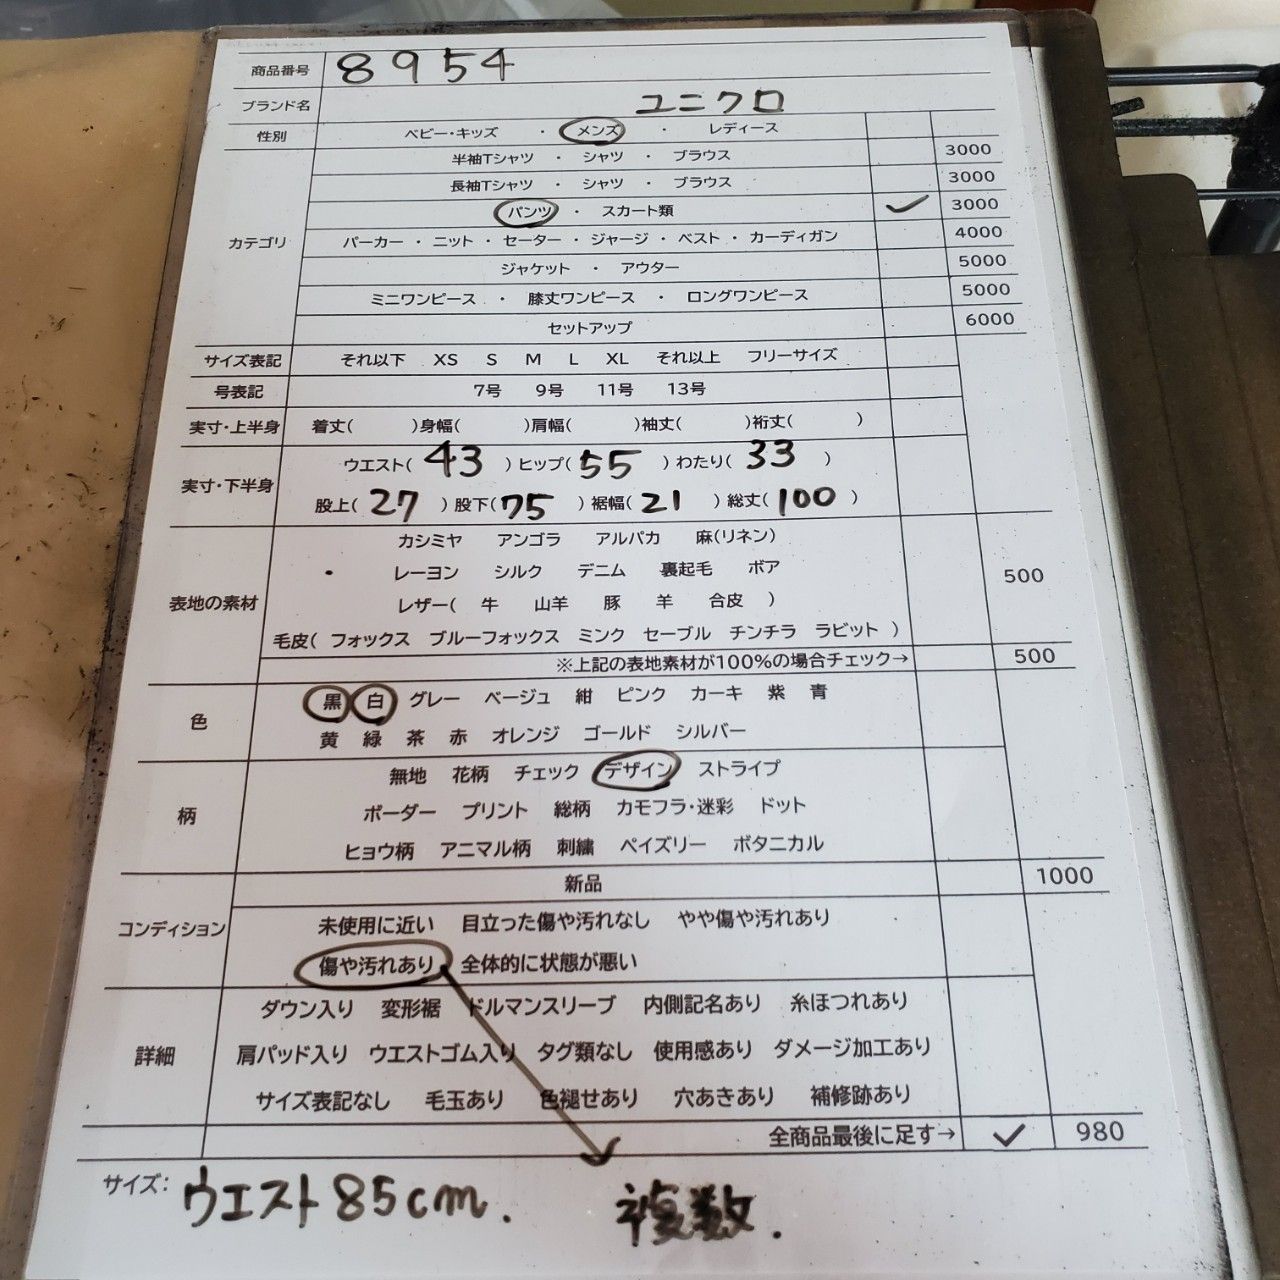 商品番号 8954
ブランド名 ユニクロ
性別 ベビー・キッズ ・ メンズ ・ レディース
半袖Tシャツ ・ シャツ ・ ブラウス 3000
長袖Tシャツ ・ シャツ ・ ブラウス 3000
パンツ ・ スカート類 ✓ 3000
カテゴリ パーカー ・ ニット ・ セーター ・ ジャージ ・ ベスト ・ カーディガン 4000
ジャケット ・ アウター 5000
ミニワンピース ・ 膝丈ワンピース ・ ロングワンピース 5000
セットアップ 6000
サイズ表記 それ以下 XS S M L XL それ以上 フリーサイズ
号表記 7号 9号 11号 13号
実寸・上半身 着丈( )身幅( )肩幅( )袖丈( )裄丈( )
実寸・下半身 ウエスト( 43 )ヒップ( 55 )わたり( 33 )
股上( 27 )股下( 75 )裾幅( 21 )総丈( 100 )
表地の素材 カシミヤ アンゴラ アルパカ 麻(リネン)
・ レーヨン シルク デニム 裏起毛 ボア 500
レザー( 牛 山羊 豚 羊 合皮 )
毛皮( フォックス ブルーフォックス ミンク セーブル チンチラ ラビット )
※上記の表地素材が100%の場合チェック→ 500
色 黒 白 グレー ベージュ 紺 ピンク カーキ 紫 青
黄 緑 茶 赤 オレンジ ゴールド シルバー
柄 無地 花柄 チェック デザイン ストライプ
ボーダー プリント 総柄 カモフラ・迷彩 ドット
ヒョウ柄 アニマル柄 刺繍 ペイズリー ボタニカル
コンディション 新品 1000
未使用に近い 目立った傷や汚れなし やや傷や汚れあり
傷や汚れあり 全体的に状態が悪い
詳細 ダウン入り 変形裾 ドルマンスリーブ 内側記名あり 糸ほつれあり
肩パッド入り ウエストゴム入り タグ類なし 使用感あり ダメージ加工あり
サイズ表記なし 毛玉あり 色褪せあり 穴あきあり 補修跡あり
全商品最後に足す→ ✓ 980
サイズ: ウエスト85cm. 複数.